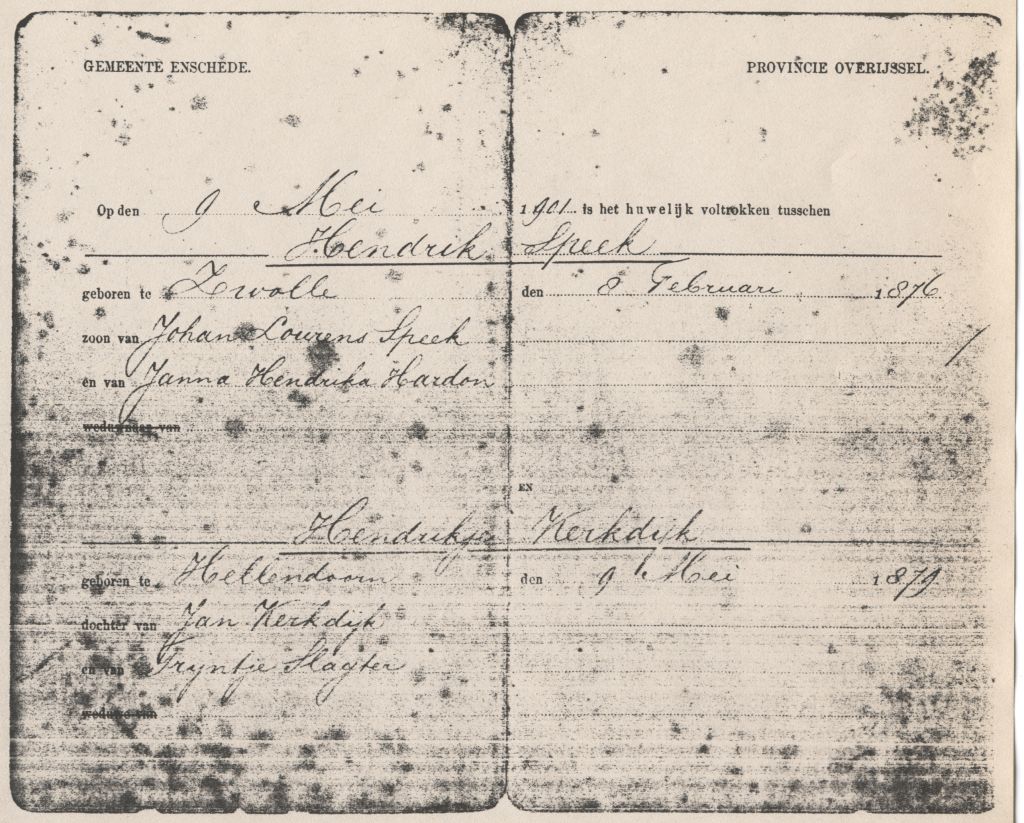 GEMEENTE ENSCHEDE. PROVINCIE OVERIJSSEL.
Op den 9 Mei 1901 is het huwelijk voltrokken tusschen
Hendrik Speek
geboren te Zwolle den 8 Februari 1876
zoon van Johan Lourens Speek
en van Janna Hendrika Hardon
weduwnaar van
EN
Hendrikje Kerkdijk
geboren te Hellendoorn den 9 Mei 1879
dochter van Jan Kerkdijk
en van Tryntje Slagter
weduwe van